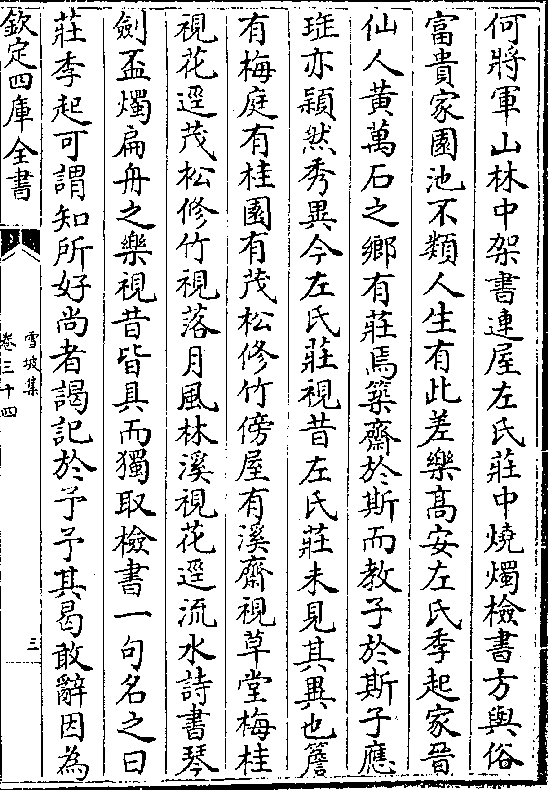 何將軍山林中架書連屋左氏莊中燒燭檢書方與俗
富貴家園池不類人生有此差樂髙安左氏季起家晉
仙人黃萬石之鄉有莊焉築齋於斯而教子於斯子應
珽亦穎然秀異今左氏莊視昔左氏莊未見其異也簷
有梅庭有桂園有茂松修竹傍屋有溪齋視草堂梅桂
視花逕茂松修竹視落月風林溪視花逕流水詩書琴
劍盃燭扁舟之樂視昔皆具而獨取檢書一句名之曰
莊季起可謂知所好尚者謁記於予予其曷敢辭因為
欽定四庫全書
雪坡集
卷三十四
三